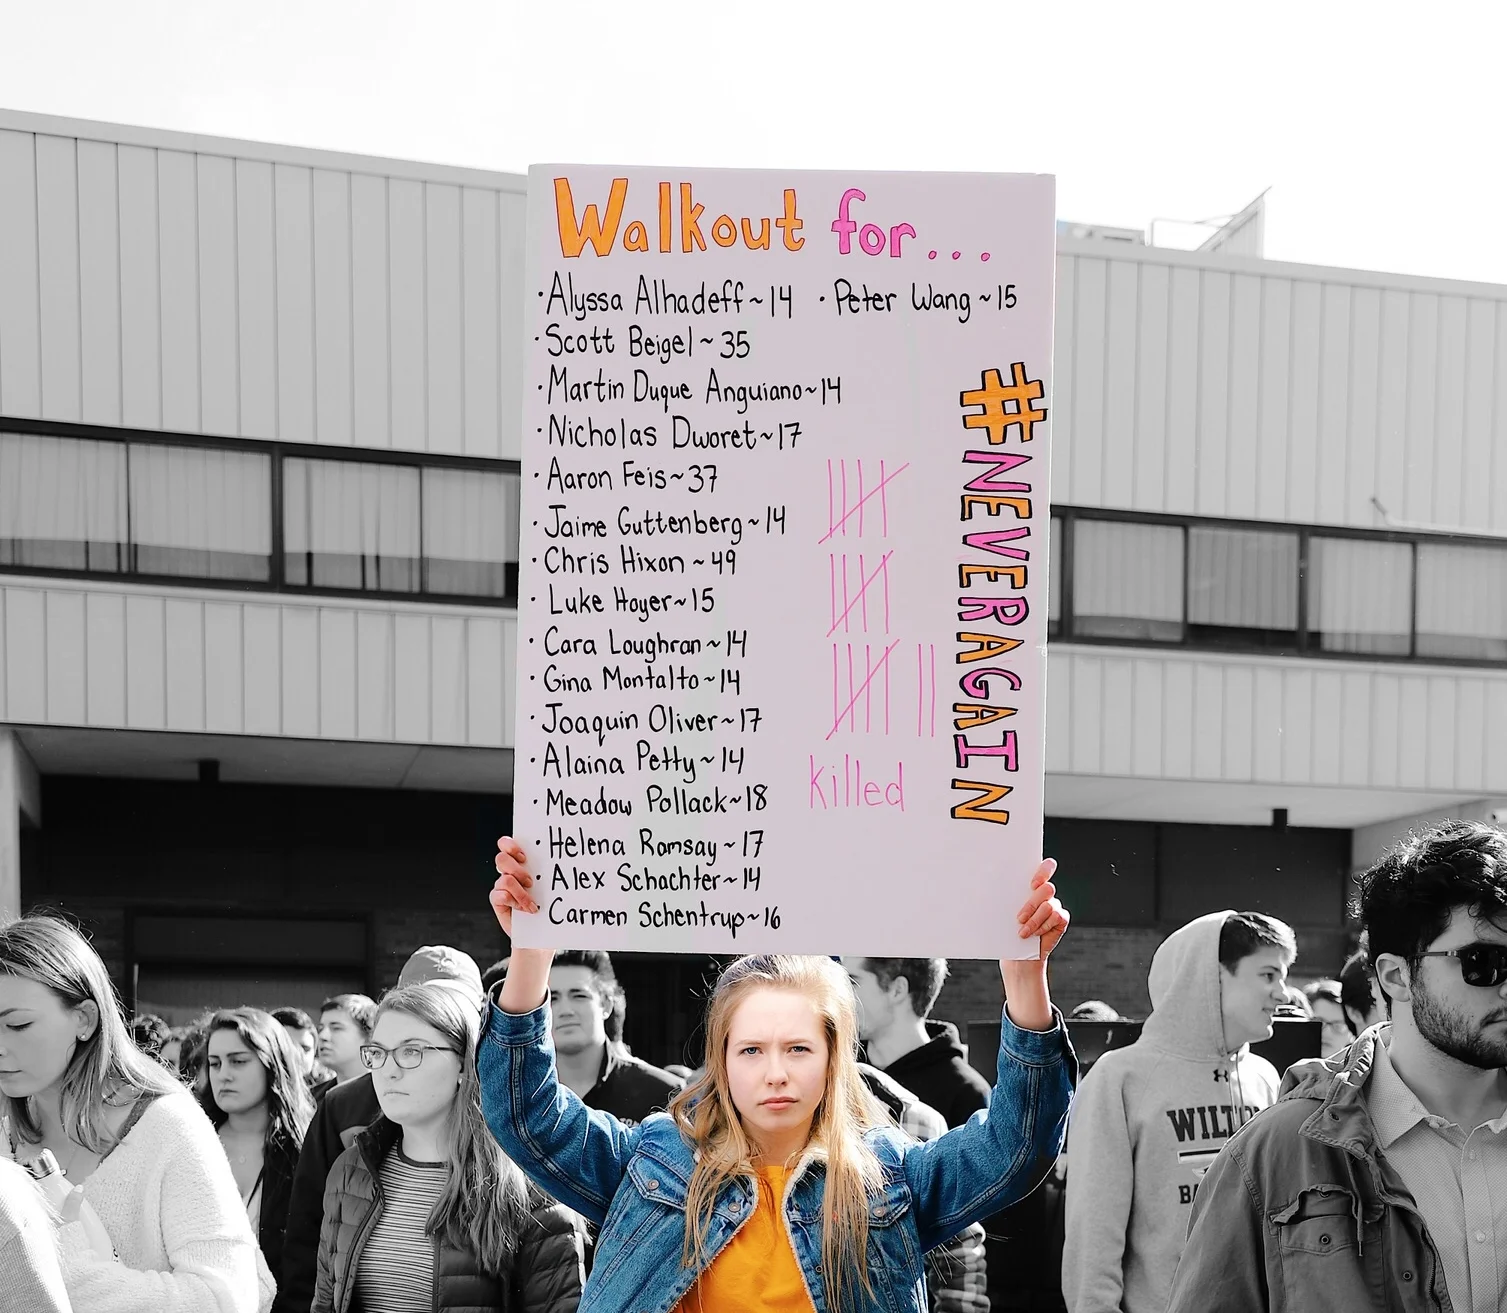 Walkout for...
·Alyssa Alhadeff~14 ·Peter Wang~15
·Scott Beigel~35
·Martin Duque Anguiano~14
·Nicholas Dworet~17
·Aaron Feis~37
·Jaime Guttenberg~14
·Chris Hixon~49
·Luke Hoyer~15
·Cara Loughran~14
·Gina Montalto~14
·Joaquin Oliver~17
·Alaina Petty~14
·Meadow Pollack~18
·Helena Ramsay~17
·Alex Schachter~14
·Carmen Schentrup~16
killed
#NEVERAGAIN